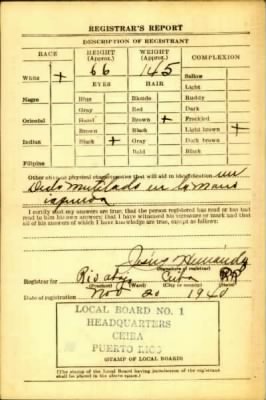 REGISTRAR'S REPORT
DESCRIPTION OF REGISTRANT
RACE HEIGHT (Approx.) WEIGHT (Approx.) COMPLEXION
White + 66 145 Sallow
EYES HAIR Light
Ruddy
Negro Blue Blonde Dark
Gray Red Freckled
Oriental Hazel Brown Light brown +
Brown Black + Dark brown
Indian Black + Gray Black
Bald
Filipino
Other obvious physical characteristics that will aid in identification un
Dedo mutilado en la mano
I certify that my answers are true; that the person registered has read or has had
read to him his own answers; that I have witnessed his signature or mark and that
all of his answers of which I have knowledge are true, except as follows:
(Signature of registrar)
Registrar for Rio abajo Ceiba PR
(Precinct) (Ward) (City or county) (State)
Date of registration Nov 20 1940
LOCAL BOARD NO. 1
HEADQUARTERS
CEIBA
PUERTO RICO
(STAMP OF LOCAL BOARD)
(The stamp of the Local Board having jurisdiction of the registrant
shall be placed in the above space.)